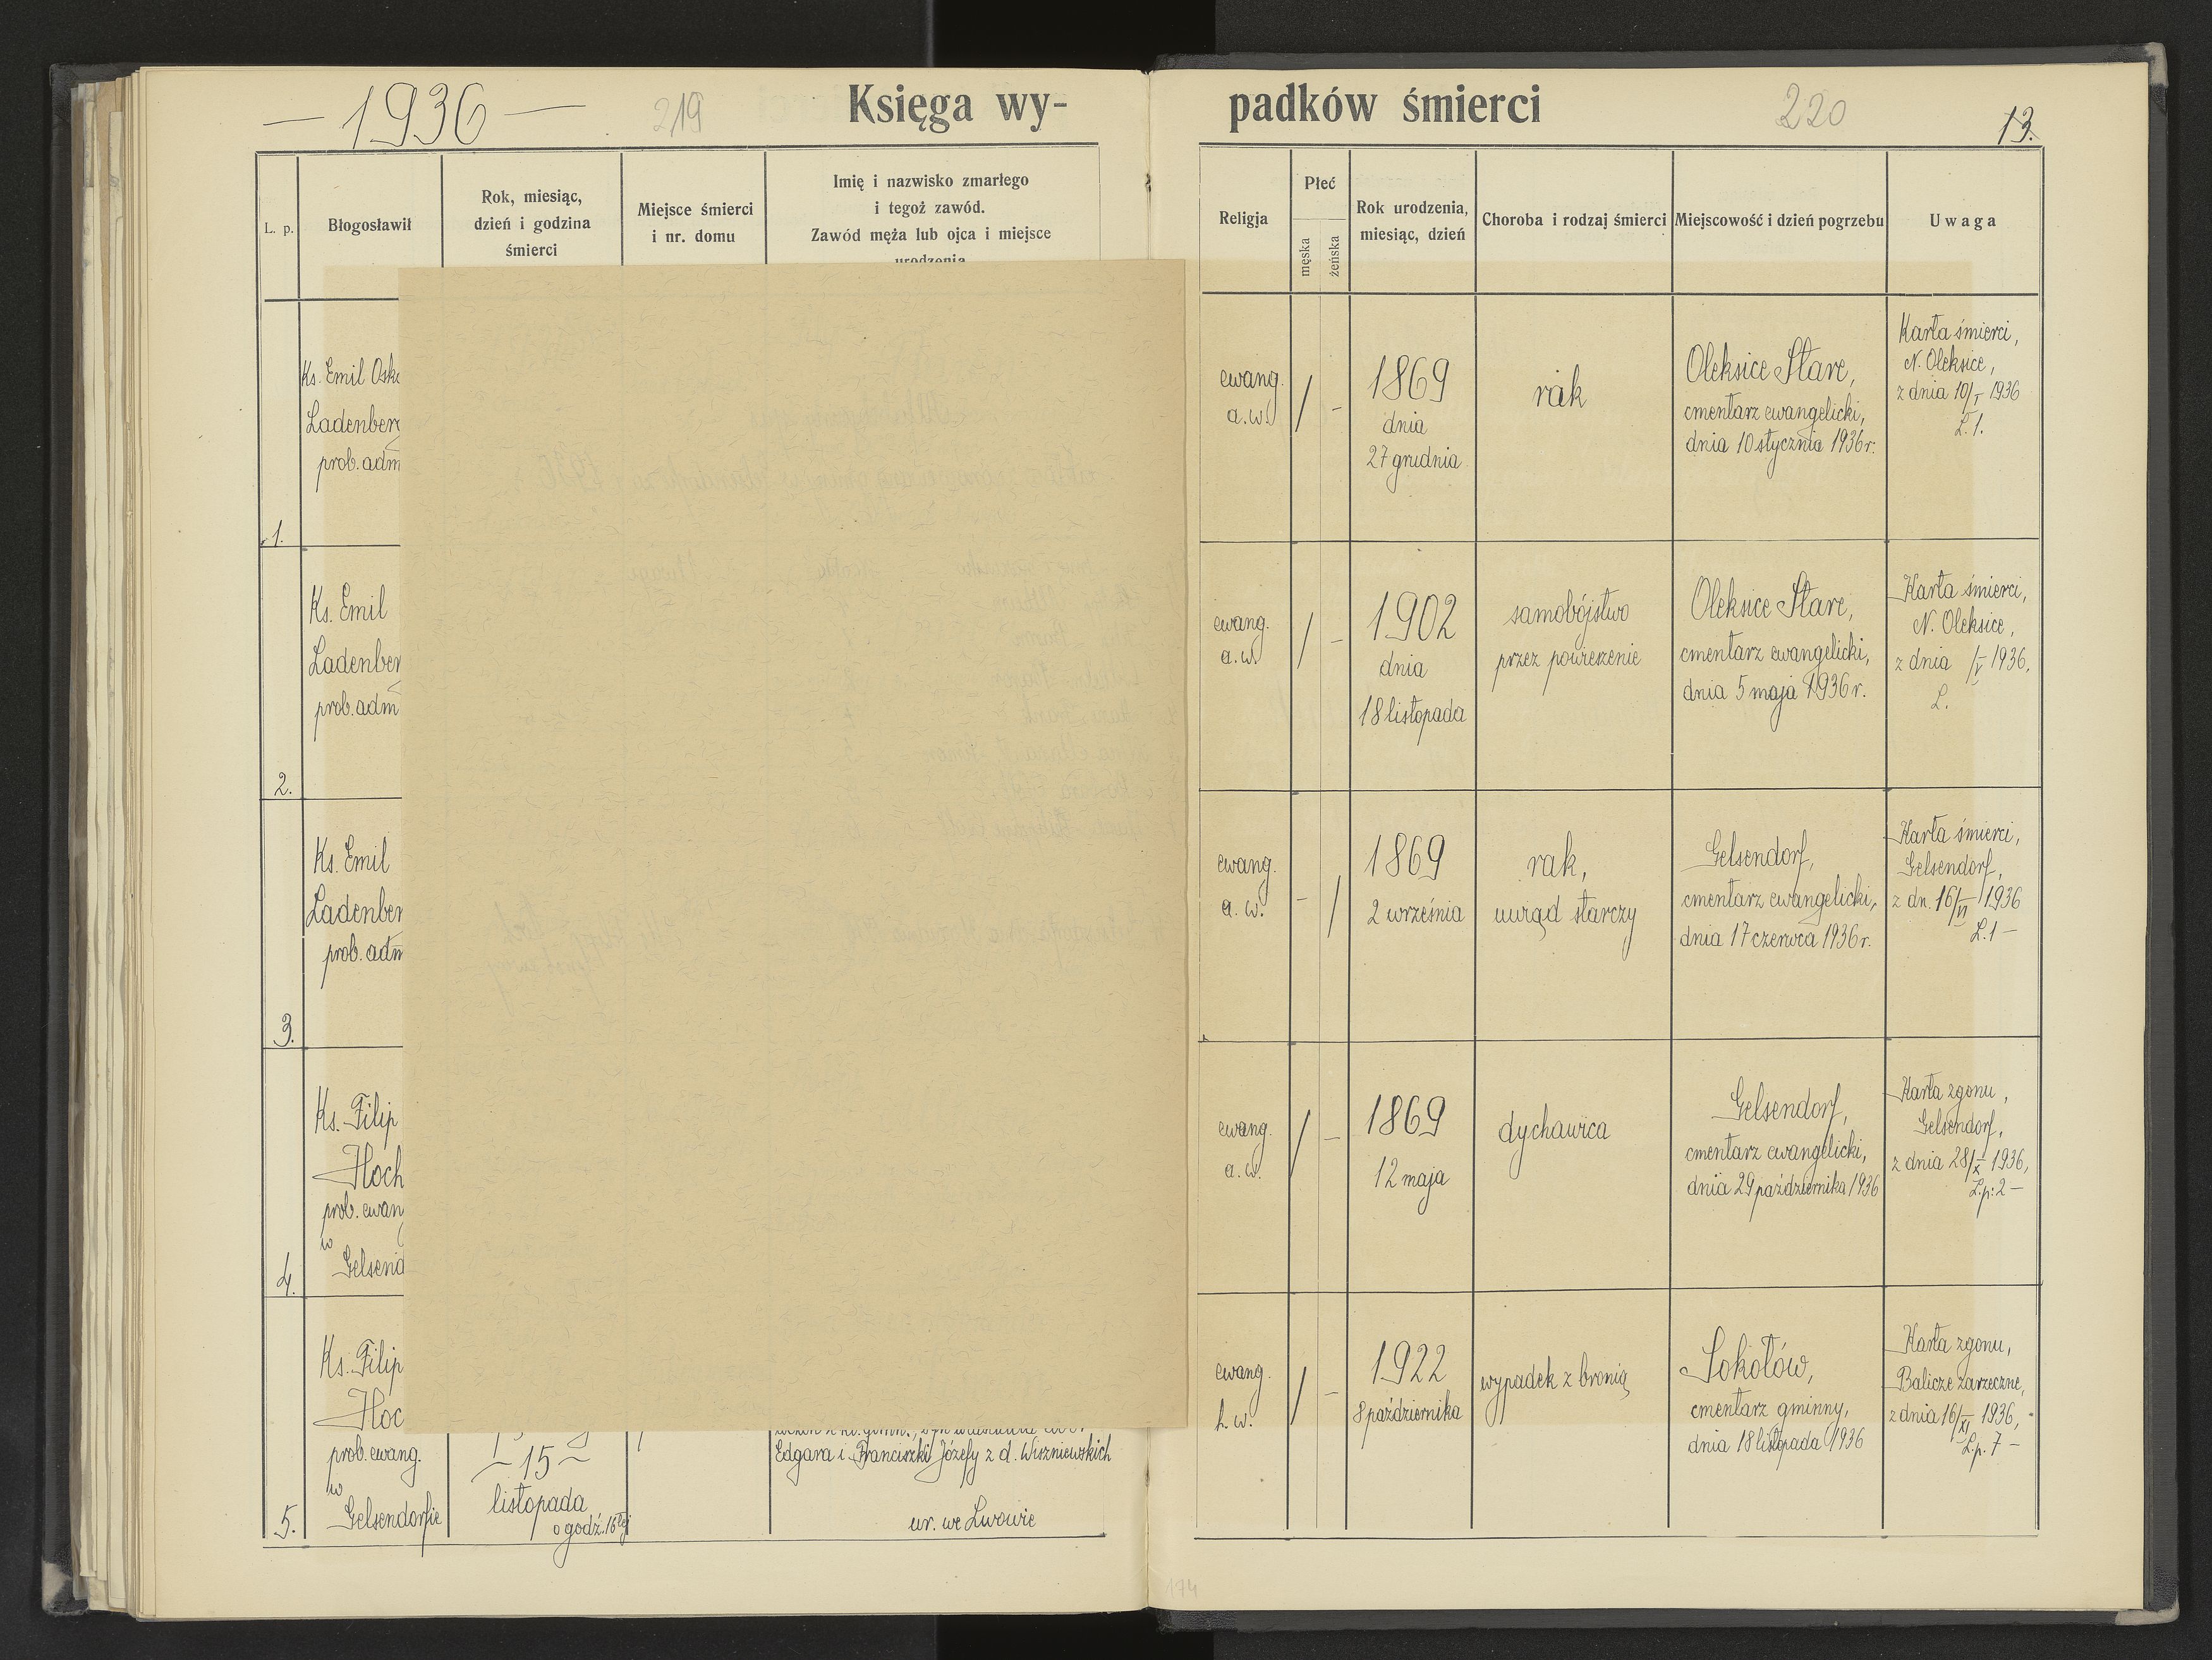 — 1936 —
219
Księga wy-
L. p.
Błogosławił
Rok, miesiąc,
dzień i godzina
śmierci
Miejsce śmierci
i nr. domu
Imię i nazwisko zmarłego
i tegoż zawód.
Zawód męża lub ojca i miejsce
urodzenia
1.
Ks. Emil Osk
Ladenberg
prob. adm
2.
Ks. Emil
Ladenber
prob. adm
3.
Ks. Emil
Ladenber
prob. adm
4.
Ks. Filip
Hoch
prob. ewang
w
Gelsend
5.
Ks. Filip
Hoc
prob. ewang.
w
Gelsendorfie
— 15 —
listopada
o godź. 16tej
Edgara i Franciszki Józefy z d. Wiszniewskich
ur. we Lwowie
padków śmierci
220
13.
Religja
Płeć
męska
żeńska
Rok urodzenia,
miesiąc, dzień
Choroba i rodzaj śmierci
Miejscowość i dzień pogrzebu
Uwaga
ewang.
a. w.
/
-
1869
dnia
27 grudnia
rak
Oleksice Stare,
cmentarz ewangelicki,
dnia 10 stycznia 1936 r.
Karta śmierci,
N. Oleksice,
z dnia 10/I 1936
L. 1.
ewang.
a. w.
/
-
1902
dnia
18 listopada
samobójstwo
przez powieszenie
Oleksice Stare,
cmentarz ewangelicki,
dnia 5 maja 1936 r.
Karta śmierci,
N. Oleksice,
z dnia /V 1936,
L.
ewang.
a. w.
-
/
1869
2 września
rak,
uwiąd starczy
Gelsendorf,
cmentarz ewangelicki,
dnia 17 czerwca 1936 r.
Karta śmierci,
Gelsendorf,
z dn. 16/VI 1936
L. 1 —
ewang.
a. w.
/
-
1869
12 maja
dychawica
Gelsendorf,
cmentarz ewangelicki,
dnia 29 października 1936
Karta zgonu,
Gelsendorf,
z dnia 28/X 1936,
L.p: 2 —
ewang.
h. w.
/
-
1922
8 października
wypadek z bronią
Sokołów,
cmentarz gminny,
dnia 18 listopada 1936
Karta zgonu,
Balicze Zarzeczne,
z dnia 16/XI 1936,
L.p. 7 —
174